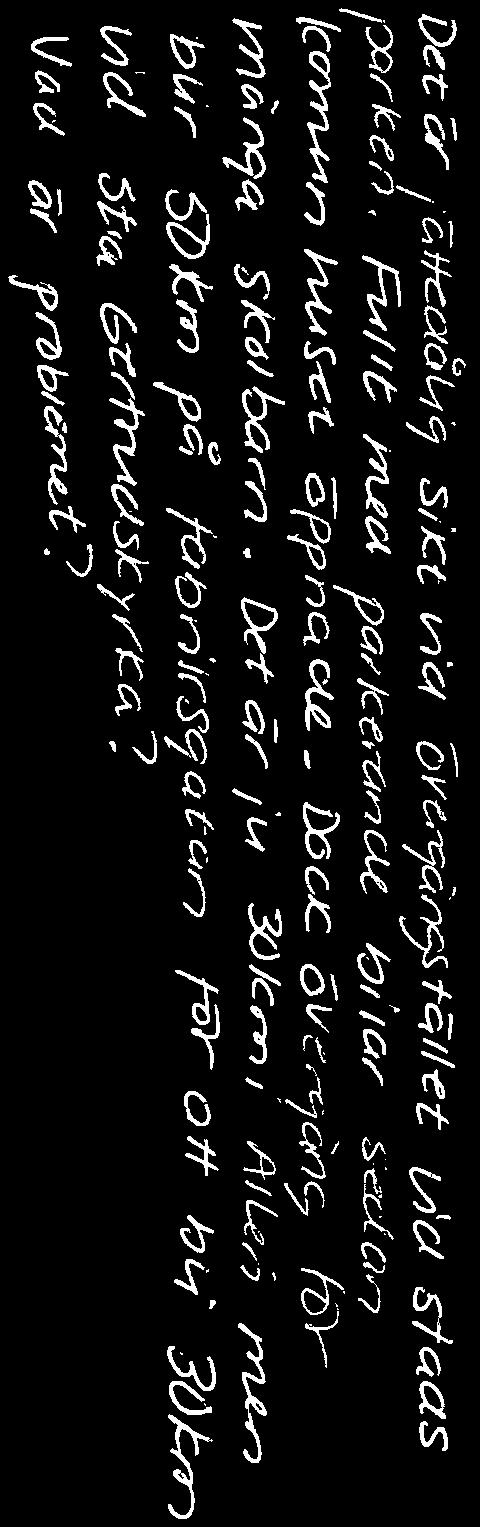 Det är jättedålig sikt vid övergångstället vid staas
parken. Fullt med parkerande bilar sedan
komunhuset öppnade. Dock övergång för
många skolbarn. Det är ju 30km i Allen men
blir 50km på fabriksgatan för att bli 30km
vid Sta Gertrudskyrka?
Vad är problemet?